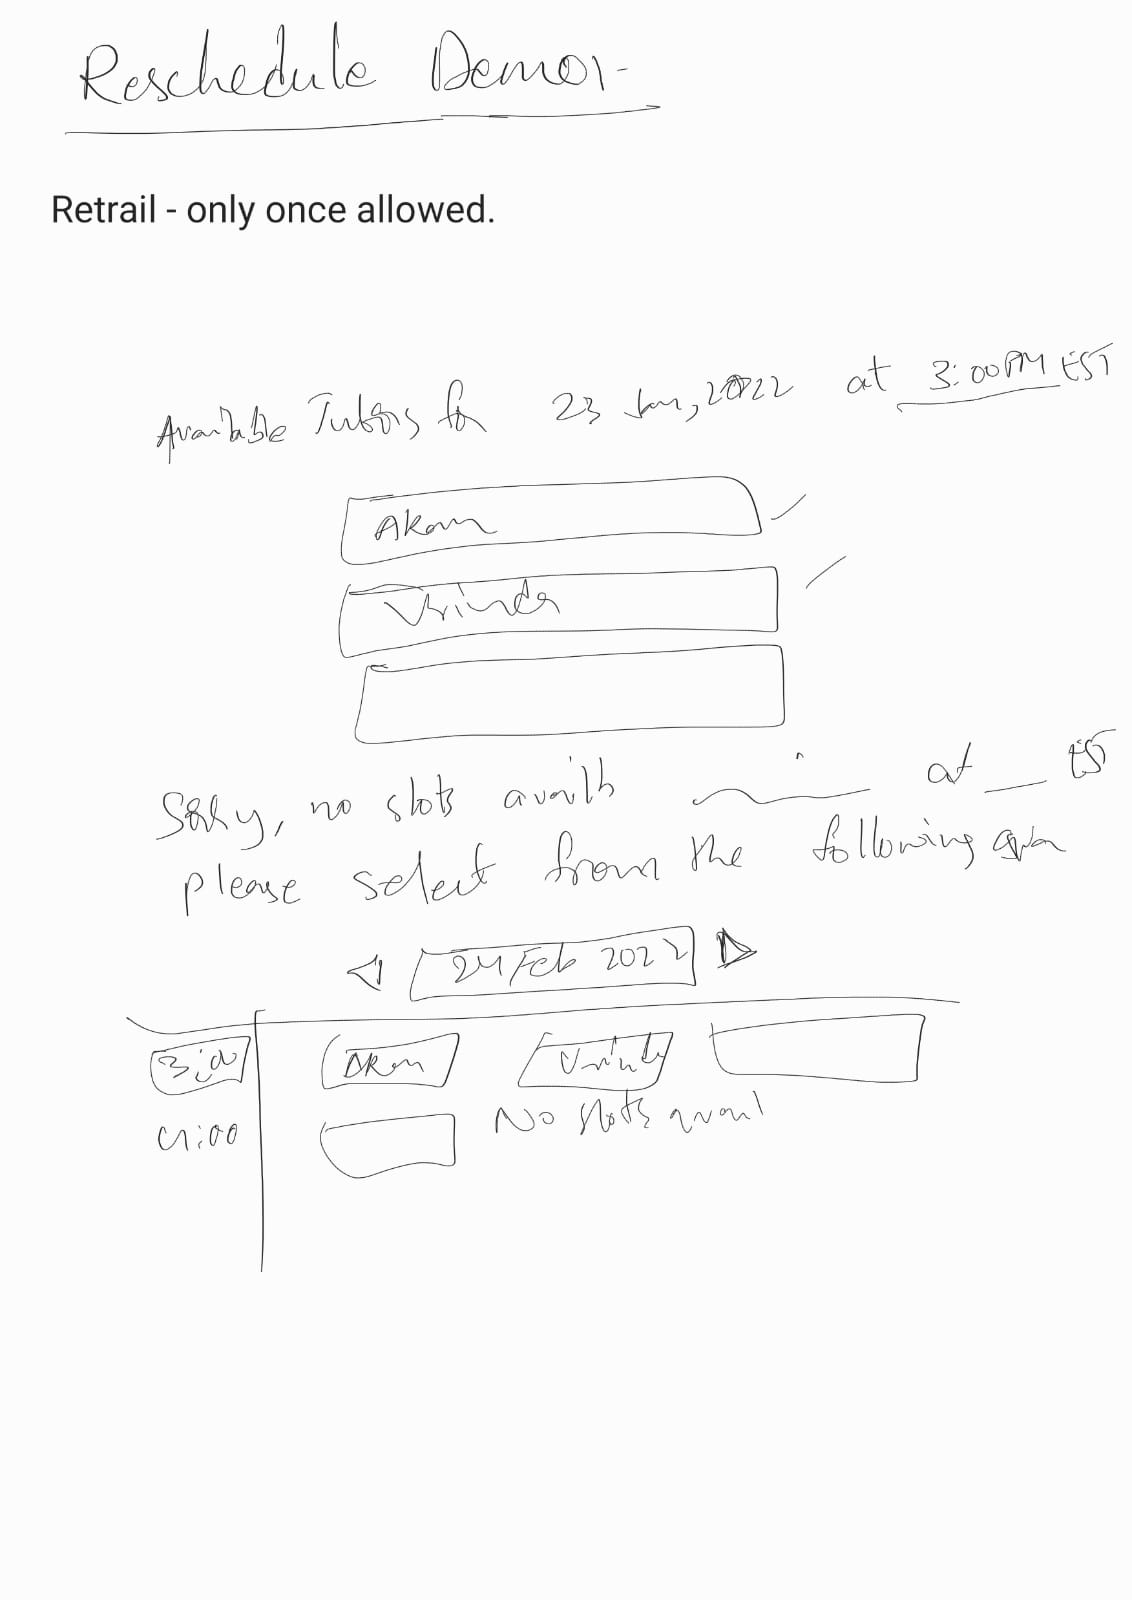 Reschedule Demo1-
Retrail - only once allowed.
Available Tutors for 23 Jan, 2022 at 3:00PM EST
Akam
Vrinda
Sorry, no slots at __ EST
please select from the following
24 Feb 2022
3:00 Akam Vrinda
4:00 No slots avail